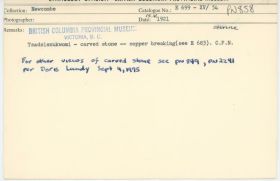 Collection: Newcombe
Catalogue No.: E 699 - XV/54 PN858
Photo No. Date: 1921
Remarks: BRITISH COLUMBIA PROVINCIAL MUSEUM
VICTORIA, B. C.
carved stone -- copper breaking (see E 683). C.F.N.
For other views of carved stone see PN
per Doris Lundy Sept 4, 1975